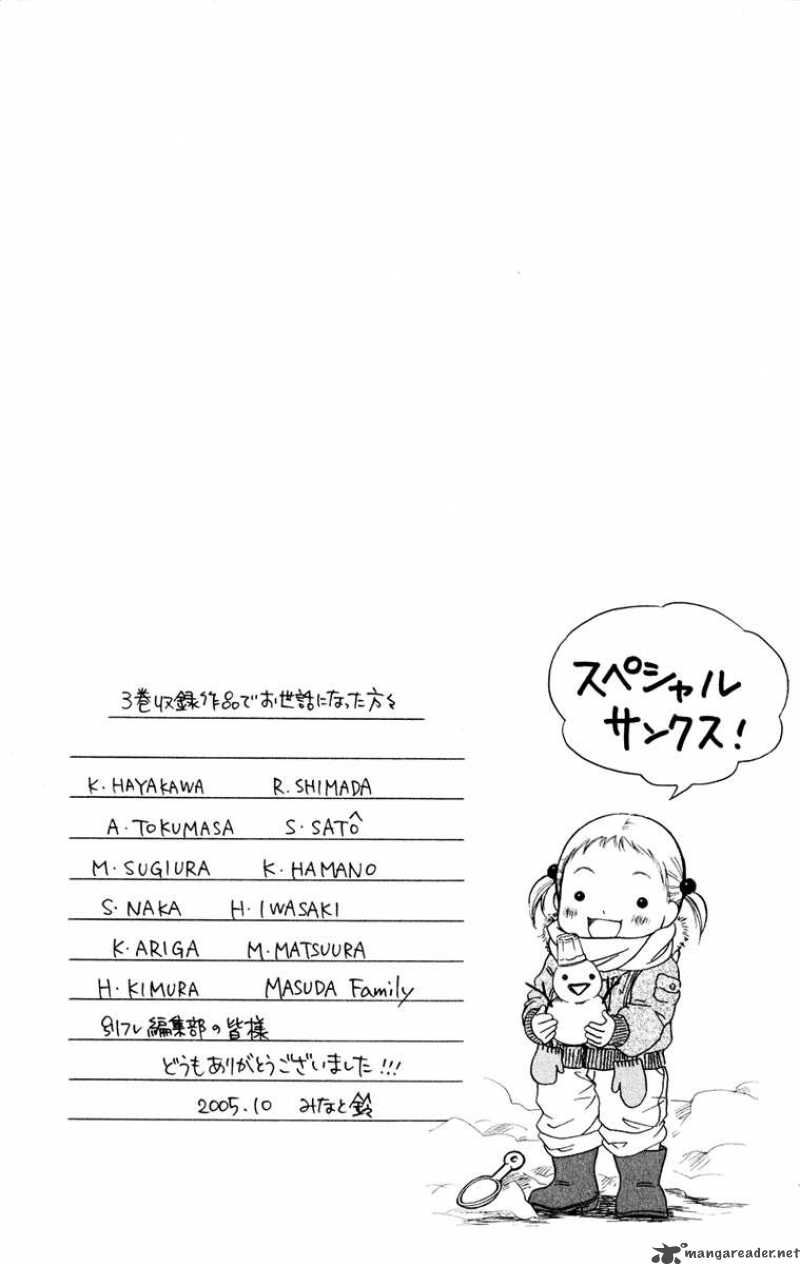 スペシャル
サンクス!
3巻収録作品でお世話になった方々
K. HAYAKAWA R. SHIMADA
A. TOKUMASA S. SATÔ
M. SUGIURA K. HAMANO
S. NAKA H. IWASAKI
K. ARIGA M. MATSUURA
H. KIMURA MASUDA Family
別フレ編集部の皆様
どうもありがとうございました!!!
2005.10 みなと鈴
mangareader.net